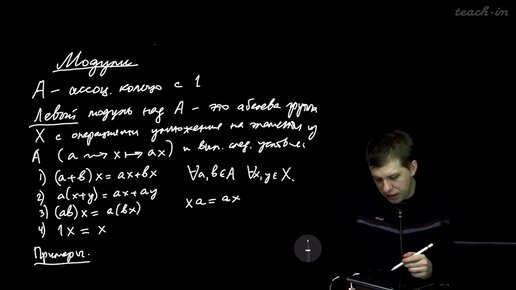 teach-in
Модули
A – ассоц. кольцо с 1
Левый модуль над A – это абелева группа
X с операциями умножения на элементы из
A (a ⟿ x ↦ ax) и вып. след. условие:
1) (a+b)x = ax+bx ∀a,b∈A ∀x,y∈X.
2) a(x+y) = ax+ay
3) (ab)x = a(bx) xa = ax
4) 1x = x
Примеры.